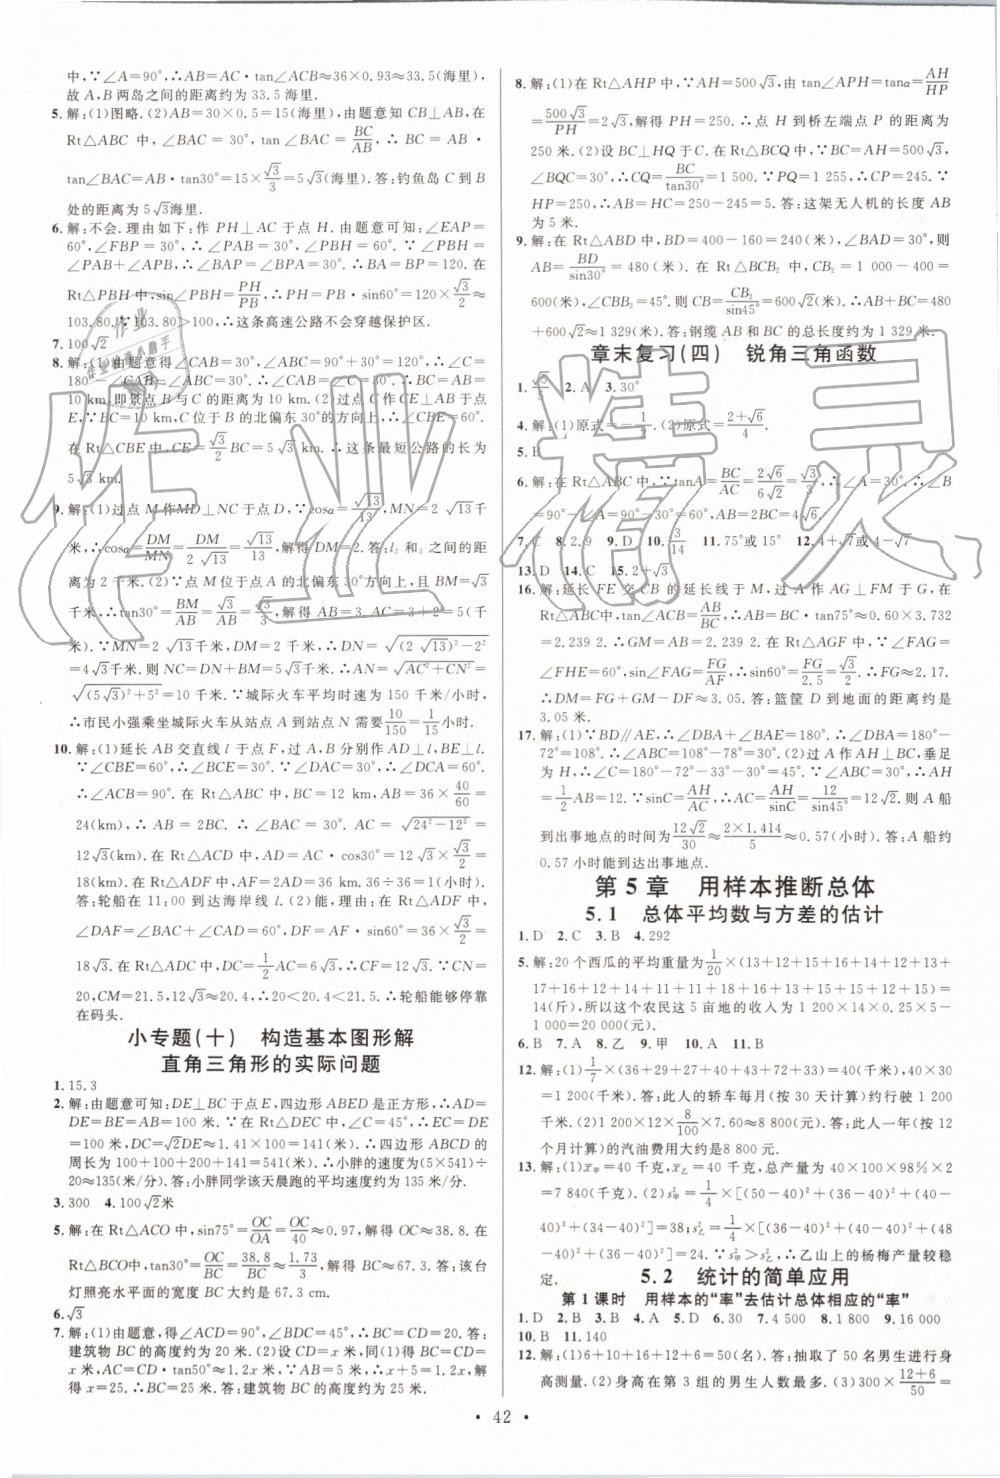 中,∵∠A=90°,∴AB=AC·tan∠ACB≈36×0.93≈33.5(海里),
故A,B两岛之间的距离约为33.5海里.
5.解:(1)图略.(2)AB=30×0.5=15(海里),由题意知CB⊥AB,在
Rt△ABC中,∠BAC=30°,tan∠BAC=BC/AB,∴BC=AB·
tan∠BAC=AB·tan30°=15×√3/3=5√3(海里).答:钓鱼岛C到B
处的距离为5√3海里.
6.解:不会.理由如下:作PH⊥AC于点H.由题意可知:∠EAP=
60°,∠FBP=30°,∴∠PAB=30°,∠PBH=60°.∵∠PBH=
∠PAB+∠APB,∴∠BAP=∠BPA=30°.∴BA=BP=120.在
Rt△PBH中,sin∠PBH=PH/PB,∴PH=PB·sin60°=120×√3/2≈
103.80.∵103.80>100,∴这条高速公路不会穿越保护区.
7.100√2
8.解:(1)由题意得∠CAB=30°,∠ABC=90°+30°=120°,∴∠C=
180°-∠CAB-∠ABC=30°.∴∠CAB=∠C=30°.∴BC=AB=
10 km,即景点B与C的距离为10 km.(2)过点C作CE⊥AB于点
E.∵BC=10 km,C位于B的北偏东30°的方向上,∴∠CBE=60°.
在Rt△CBE中,CE=√3/2 BC=5√3 km.∴这条最短公路的长为
5√3 km.
9.解:(1)过点M作MD⊥NC于点D,∵cosα=√13/13,MN=2√13千
米,∴cosα=DM/MN=DM/2√13=√13/13,解得DM=2.答:l₂和l₃之间的距
离为2千米.(2)∵点M位于点A的北偏东30°方向上,且BM=√3千
米,∴tan30°=BM/AB=√3/AB=√3/3,解得AB=3.∴AC=3+2=5(千
米).∵MN=2√13千米,DM=2千米,∴DN=√((2√13)²-2²)=
4√3千米.则NC=DN+BM=5√3千米.∴AN=√(AC²+CN²)=
√((5√3)²+5²)=10(千米).∵城际火车平均时速为150千米/小时,
∴市民小强乘坐城际火车从站点A到站点N需要10/150=1/15小时.
10.解:(1)延长AB交直线l于点F,过A,B分别作AD⊥l,BE⊥l.
∵∠CBE=60°,∴∠BCE=30°.∵∠DAC=30°,∴∠DCA=60°.
∴∠ACB=90°.在Rt△ABC中,BC=12 km,AB=36×40/60=
24(km),∴AB=2BC.∴∠BAC=30°,AC=√(24²-12²)=
12√3(km).在Rt△ACD中,AD=AC·cos30°=12√3×√3/2=
18(km).在Rt△ADF中,AF=2AD=36 km.36÷36=1(小时).
答:轮船在11:00到达海岸线l.(2)能,理由:在Rt△ADF中,
∠DAF=∠BAC+∠DAC=60°,∴∠AFD=30°.∴DF=√3AD=
18√3.在Rt△ADC中,DC=1/2AC=6√3,∴CF=12√3.∵CN=
20,CM=21.5,12√3≈20.4,∴20<20.4<21.5.∴轮船能够停靠
在码头.
小专题(十) 构造基本图形解
直角三角形的实际问题
1.15.3
2.解:由题意可知:DE⊥BC于点E,四边形ABED是正方形,∴AD=
DE=BE=AB=100米.在Rt△DEC中,∠C=45°,∴EC=DE
=100米,DC=√2DE≈1.41×100=141(米).∴四边形ABCD的
周长为100+100+200+141=541(米).∴小胖的速度为(5×541)÷
20≈135(米/分).答:小胖同学该天晨跑的平均速度约为135米/分.
3.300 4.100√2米
5.解:在Rt△ACO中,sin75°=OC/OA=OC/40≈0.97,解得OC≈38.8.在
Rt△BCO中,tan30°=OC/BC=38.8/BC≈1.73/3,解得BC≈67.3.答:该台
灯照亮水平面的宽度BC大约是67.3 cm.
6.√3
7.解:(1)由题意,得∠ACB=90°,∠BDC=45°,∴BC=DC=20.答:
建筑物BC的高度约为20米.(2)设CD=x米,同(1)可得BC=CD=
x米,AC=CD·tan50°≈1.2x米,∵AB=5米,∴x+5=1.2x,解
得x=25.答:建筑物BC的高度约为25米.
8.解:(1)在Rt△AHP中,∵AH=500√3,由tan∠APH=tanα=AH/HP
=500√3/PH=2√3,解得PH=250.∴点H到桥左端点P的距离为
250米.(2)设BC⊥HQ于C.在Rt△BCQ中,∵BC=AH=500√3,
∠BQC=30°,∴CQ=BC/tan30°=1 500.∵PQ=1 255,∴CP=245.∵
HP=250,∴AB=HC=250-245=5.答:这架无人机的长度AB
为5米.
9.解:在Rt△ABD中,BD=400-160=240(米),∠BAD=30°,则
AB=BD/sin30°=480(米).在Rt△BCB₂中,CB₂=1 000-400=
600(米),∠CBB₂=45°.则CB=CB₂/sin45°=600√2(米),∴AB+BC=480
+600√2≈1 329(米).答:钢缆AB和BC的总长度约为1 329米.
章末复习(四) 锐角三角函数
2.A 3.30°
4.解:(1)原式= (2)原式=(2+√6)/4.
5.B
6.解:在Rt△ABC中,∵tanA=BC/AC=2√6/6√2=√3/3,∴∠A=30°.∴∠B
=90°-∠A=90°-30°=60°,AB=2BC=4√6.
7.C 8.2.9 9.D 10.3/14 11.75°或15° 12.4+√7或4-√7
13.D 14.C 15.2+√3
16.解:延长FE交CB的延长线于M,过A作AG⊥FM于G,在
Rt△ABC中,tan∠ACB=AB/BC,∴AB=BC·tan75°≈0.60×3.732
=2.239 2.∴GM=AB=2.239 2.在Rt△AGF中,∵∠FAG=
∠FHE=60°,sin∠FAG=FG/AF,∴sin60°=FG/2.5=√3/2,∴FG≈2.17.
∴DM=FG+GM-DF≈3.05(米).答:篮筐D到地面的距离约是
3.05米.
17.解:(1)∵BD∥AE,∴∠DBA+∠BAE=180°.∴∠DBA=180°-
72°=108°.∴∠ABC=108°-78°=30°.(2)过A作AH⊥BC,垂足
为H,∴∠C=180°-72°-33°-30°=45°.∵∠ABC=30°,∴AH
=1/2AB=12.∵sinC=AH/AC,∴AC=AH/sinC=12/sin45°=12√2.则A船
到出事地点的时间为12√2/30≈(2×1.414)/5≈0.57(小时).答:A船约
0.57小时能到达出事地点.
第5章 用样本推断总体
5.1 总体平均数与方差的估计
1.D 2.C 3.B 4.292
5.解:20个西瓜的平均重量为1/20×(13+12+15+16+14+12+13+
17+16+12+15+14+13+11+14+15+15+16+12+15)=
14(斤),所以这个农民这5亩地的收入为1 200×14×0.25×5-
1 000=20 000(元).
6.B 7.A 8.乙 9.甲 10.A 11.B
12.解:(1)1/7×(36+29+27+40+43+72+33)=40(千米),40×30=
1 200(千米).答:此人的轿车每月(按30天计算)约行驶1 200
千米.(2)1 200×12×8/100×7.0≈8 800(元).答:此人一年(按12
个月计算)的汽油费用大约是8 800元.
13.解:(1)x̄甲=40千克,x̄乙=40千克,总产量为40×100×98%×2
=7 840(千克).(2)s²甲=1/4×[(50-40)²+(36-40)²+(40-
40)²+(34-40)²]=38;s²乙=1/4×[(36-40)²+(40-40)²+(48
-40)²+(36-40)²]=24.∵s²甲>s²乙,∴乙山上的杨梅产量较稳
定.
5.2 统计的简单应用
第1课时 用样本的“率”去估计总体相应的“率”
1.D 2.A 3.C 4.D 5.D 6.30 7.4 500 8.1 800 9.16 000
10.B 11.140
12.解:(1)6+10+16+12+6=50(名).答:抽取了50名男生进行身
高测量.(2)身高在第3组的男生人数最多.(3)300×(12+6)/50=
·42·